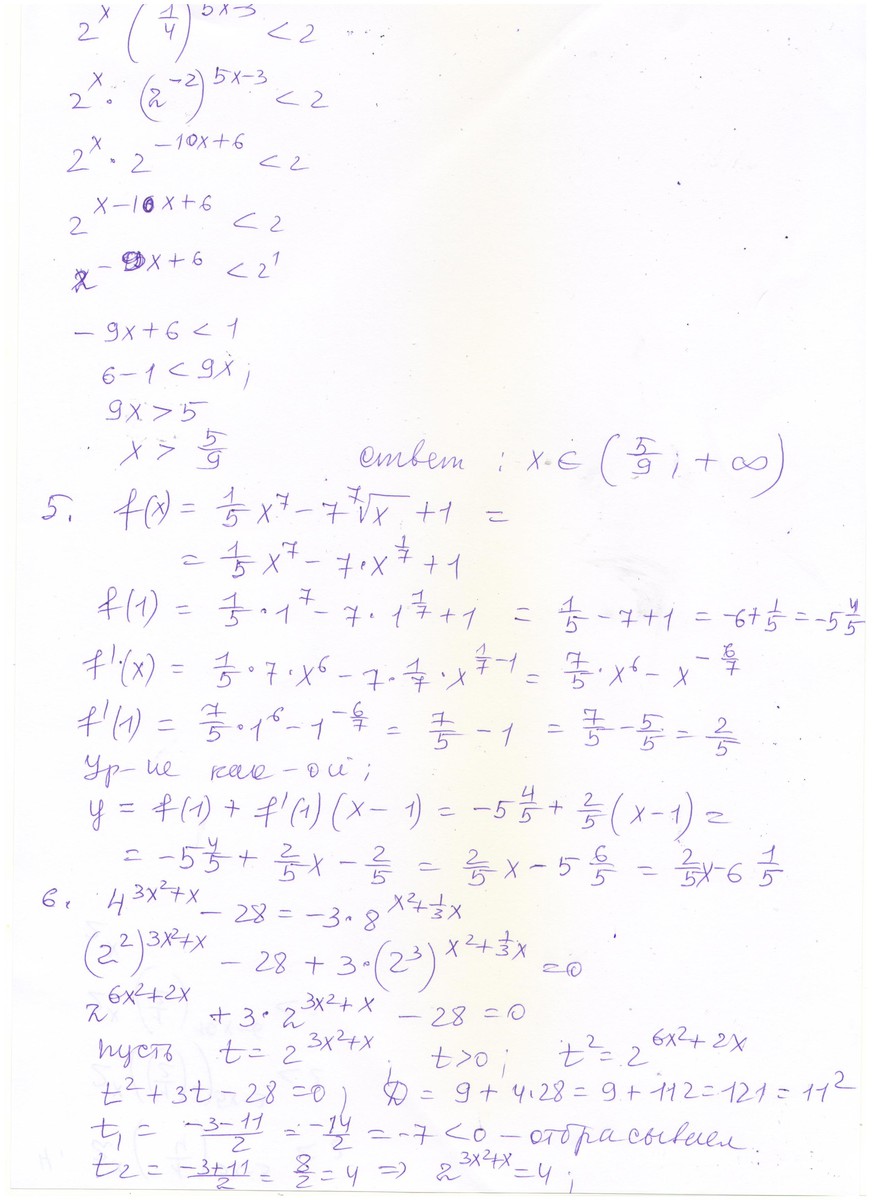 2^x (1/4)^(5x-3) < 2
2^x · (2^(-2))^(5x-3) < 2
2^x · 2^(-10x+6) < 2
2^(x-10x+6) < 2
2^(-9x+6) < 2^1
- 9x+6 < 1
6-1 < 9x;
9x > 5
x > 5/9 ответ: x ∈ (5/9; +∞)
5. f(x) = 1/5 x^7 - 7 ⁷√x + 1 =
= 1/5 x^7 - 7·x^(1/7) + 1
f(1) = 1/5 · 1^7 - 7·1^(1/7) + 1 = 1/5 - 7 + 1 = -6 + 1/5 = -5 4/5
f'(x) = 1/5 · 7 · x^6 - 7 · 1/7 · x^(1/7 - 1) = 7/5 · x^6 - x^(-6/7)
f'(1) = 7/5 · 1^6 - 1^(-6/7) = 7/5 - 1 = 7/5 - 5/5 = 2/5
Ур-ие кас-ой;
y = f(1) + f'(1)(x-1) = -5 4/5 + 2/5 (x-1) =
= -5 4/5 + 2/5 x - 2/5 = 2/5 x - 5 6/5 = 2/5 x - 6 1/5
6. 4^(3x²+x) - 28 = -3·8^(x²+1/3x)
(2²)^(3x²+x) - 28 + 3·(2³)^(x²+1/3x) = 0
2^(6x²+2x) + 3·2^(3x²+x) - 28 = 0
пусть t = 2^(3x²+x); t>0; t² = 2^(6x²+2x)
t² + 3t - 28 = 0; D = 9 + 4·28 = 9 + 112 = 121 = 11²
t₁ = (-3-11)/2 = -14/2 = -7 < 0 - отбрасываем
t₂ = (-3+11)/2 = 8/2 = 4 ⇒ 2^(3x²+x) = 4;